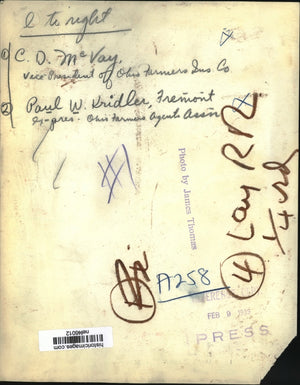 l to right
① C. D. McVay,
Vice President of Ohio Farmers Ins Co
② Paul W. Kridler, Fremont
ex-pres. Ohio Farmers Agents Assn
Photo by James Thomas
④ Lay RR
1/4
A258
FEB 9
PRESS
historicimages.com